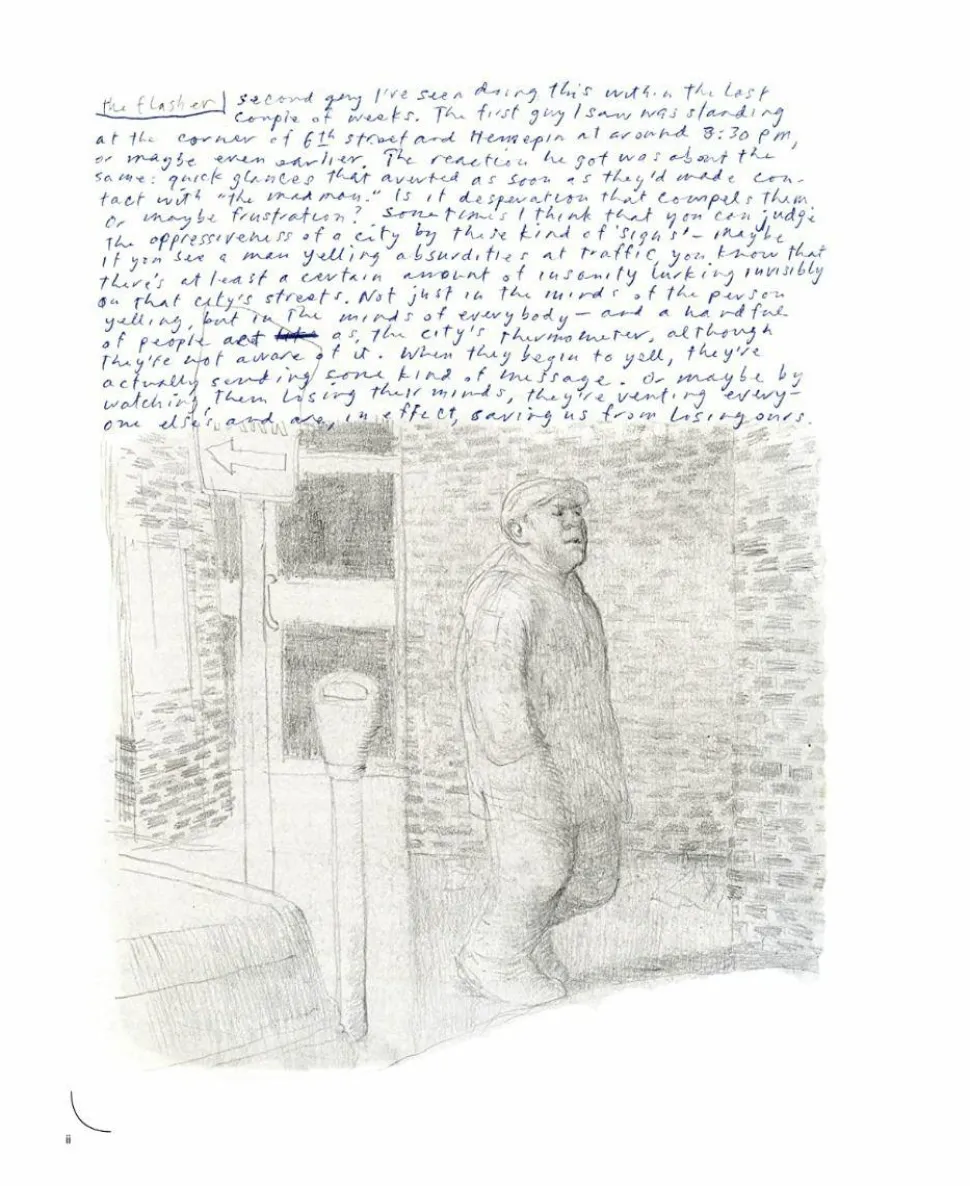 the flasher
second guy I've seen doing this within the last
couple of weeks. The first guy I saw was standing
at the corner of 6th street and Hennepin at around 3:30 pm,
or maybe even earlier. The reaction he got was about the
same: quick glances that averted as soon as they'd made con-
tact with "the madman." Is it desperation that compels them
or maybe frustration? Sometimes I think that you can judge
the oppressiveness of a city by these kind of 'signs' – maybe
if you see a man yelling absurdities at traffic, you know that
there's at least a certain amount of insanity lurking invisibly
on that city's streets. Not just in the minds of the person
yelling, but in the minds of everybody – and a handful
of people act as, the city's thermometer, although
they're not aware of it. When they begin to yell, they're
actually sending some kind of message. Or maybe by
watching them losing their minds, they're venting every-
one else's and are, in effect, saving us from losing ours.
ii